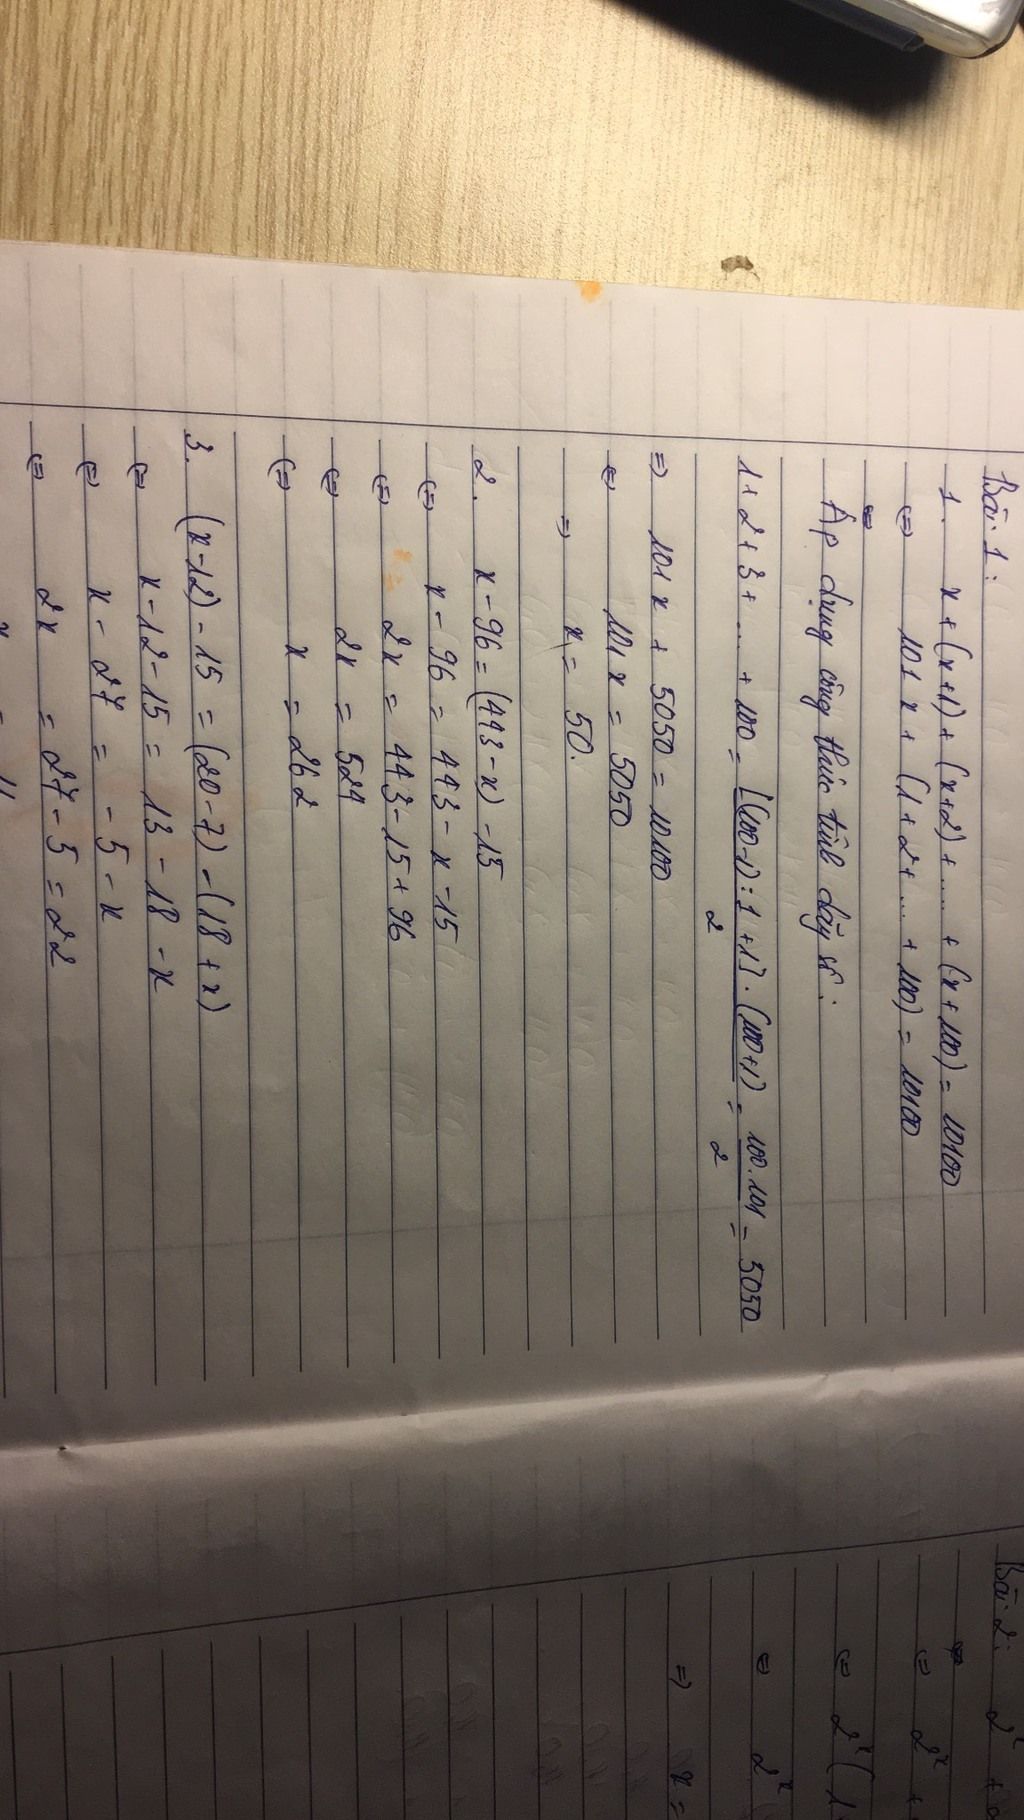 Bài 1:
1. x + (x+1) + (x+2) + .... + (x+100) = 10100
⇔ 101x + (1+2+... + 100) = 10100
⇔
Áp dụng công thức tính dãy số:
1+2+3+ ... + 100 = [(100-1):1+1].(100+1)/2 = 100.101/2 = 5050
⇒ 101x + 5050 = 10100
⇔ 101x = 5050
⇒ x = 50.
2. x - 96 = (443 - x) - 15
⇔ x - 96 = 443 - x - 15
⇔ 2x = 443 - 15 + 96
⇔ 2x = 524
⇔ x = 262
3. (x-12) - 15 = (20-7) - (18+x)
⇔ x - 12 - 15 = 13 - 18 - x
⇔ x - 27 = -5 - x
⇔ 2x = 27 - 5 = 22
x = 11
Bài 2: 2^x +
⇔ 2^x +
⇔ 2^x (1
⇔ 2^x
⇒ x =